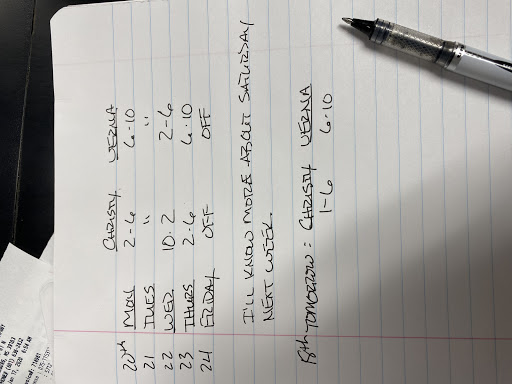 CHRISTY VERNA
20th MON 2-6 6-10
21 TUES " "
22 WED 10-2 2-6
23 THURS 2-6 6-10
24 FRIDAY OFF OFF
I'LL KNOW MORE ABOUT SATURDAY
NEXT WEEK.
18th TOMORROW: CHRISTY VERNA
1-6 6-10